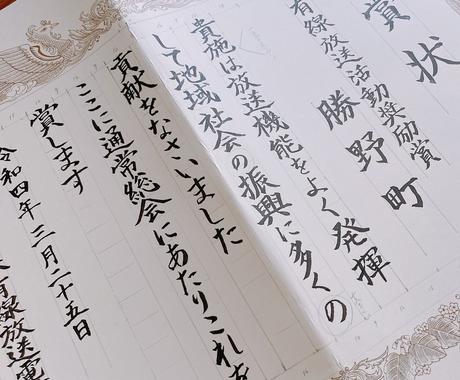 賞状
有線放送活動奨励賞
勝野町
貴施は放送機能をよく発揮
して地域社会の振興に多くの
貢献をなさいました
ここに通常総会にあたりこれを
賞します
令和四年三月二十五日
有線放送電